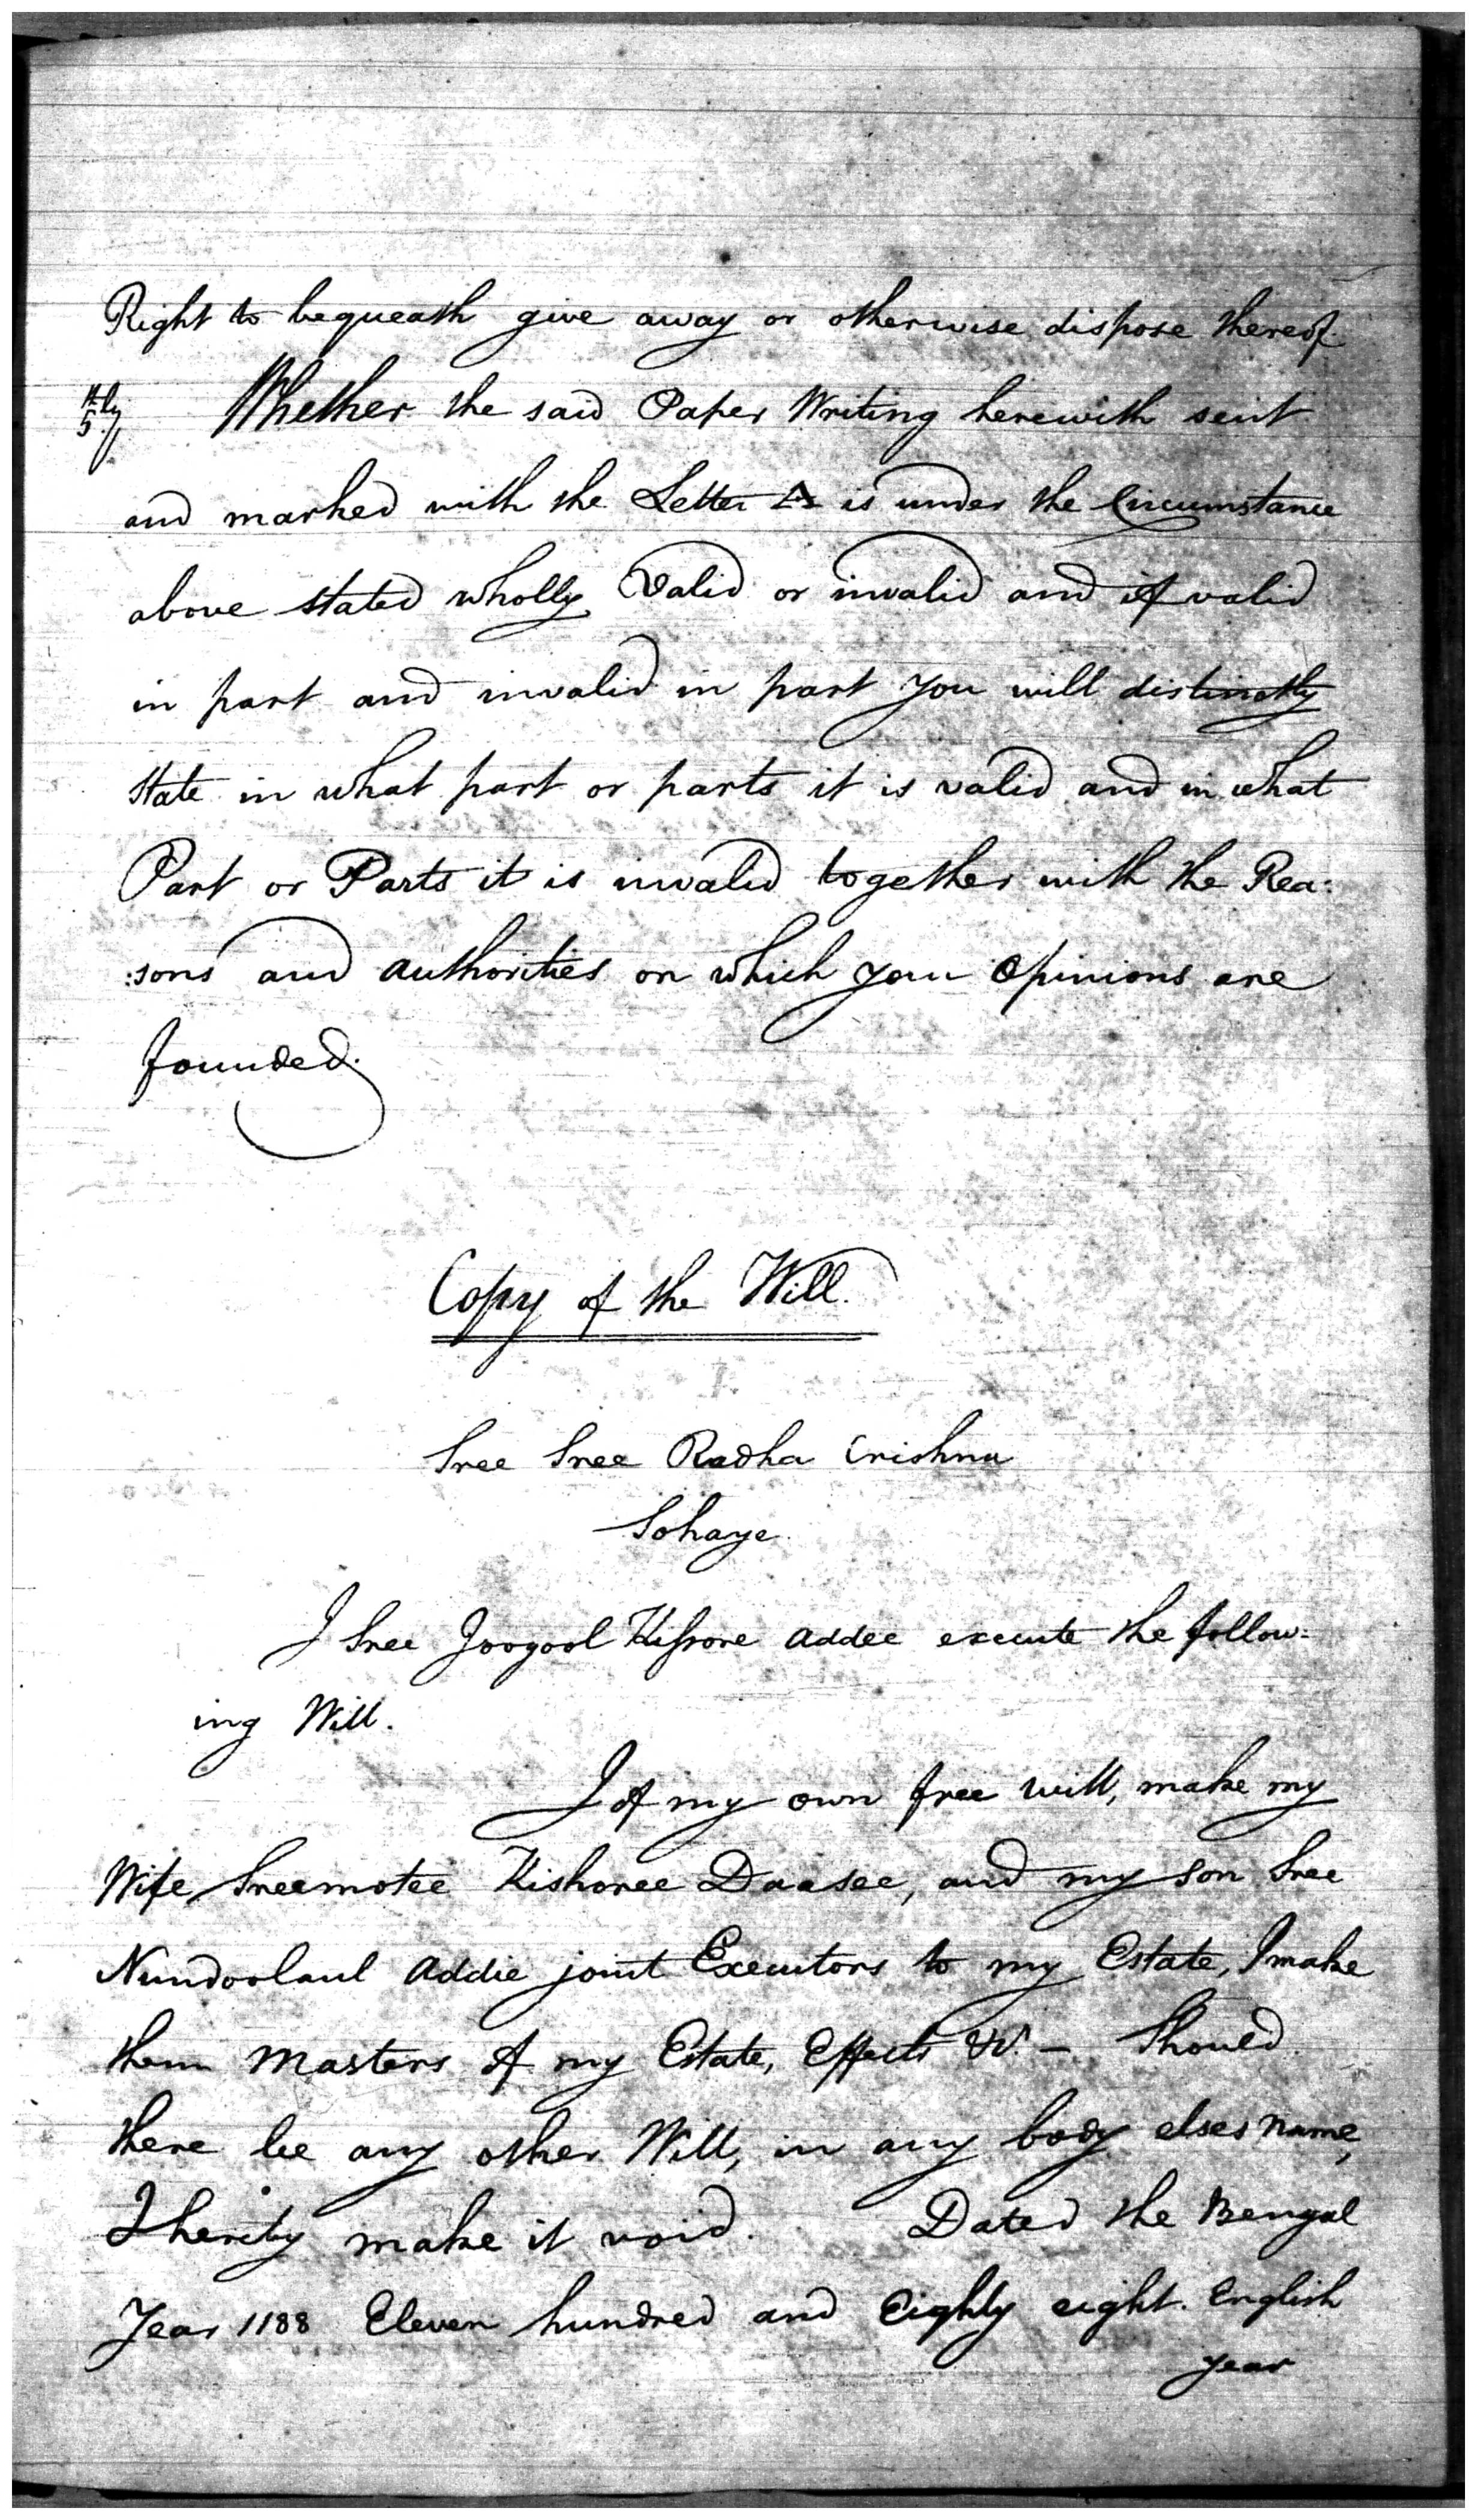 Right to bequeath give away or otherwise dispose thereof.
5thly Whether the said Paper Writing herewith sent
and marked with the Letter A is under the Circumstance
above stated wholly Valid or invalid and if valid
in part and invalid in part you will distinctly
state in what part or parts it is valid and in what
Part or Parts it is invalid together with the Rea:
:sons and authorities on which your Opinions are
founded.
Copy of the Will.
Sree Sree Radha Crishna
Sohaye
I Sree Joogool Kissore Addee execute the follow:
ing Will.
I of my own free will, make my
Wife Sreemotee Kishoree Daasee, and my son Sree
Nundoolaul Addie joint Executors to my Estate, I make
them Masters of my Estate, Effects &c. – Should
there be any other Will, in any body elses name,
I hereby make it void. Dated the Bengal
Year 1188 Eleven hundred and Eighty eight. English
year